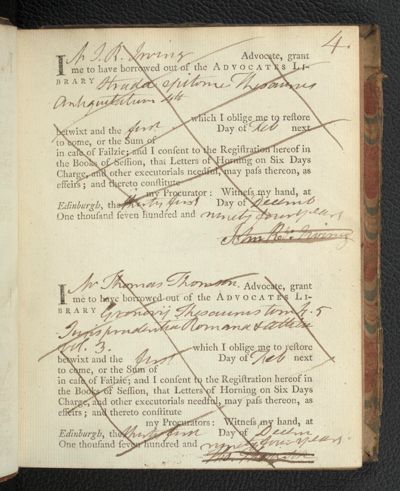 4.
I Mr J. R. Irving Advocate, grant
me to have borrowed out of the ADVOCATES LI-
BRARY epitome Thesaurus
Antiquitatum 4to
which I oblige me to reſtore
betwixt and the first Day of Feb next
to come, or the Sum of
in caſe of Failzie; and I conſent to the Regiſtration hereof in
the Books of Seſſion, that Letters of Horning on Six Days
Charge, and other executorials needful, may paſs thereon, as
effeirs; and thereto conſtitute
my Procurator: Witneſs my hand, at
Edinburgh, the thirty first Day of Decemb
One thouſand ſeven hundred and ninety four years
Irving
I Mr Thomas Thomson Advocate, grant
me to have borrowed out of the ADVOCATES LI-
BRARY Gronovij Thesaurus tom. 5
Jurisprudentia Romana & Attica
vol. 3. which I oblige me to reſtore
betwixt and the first Day of Feb next
to come, or the Sum of
in caſe of Failzie; and I conſent to the Regiſtration hereof in
the Books of Seſſion, that Letters of Horning on Six Days
Charge, and other executorials needful, may paſs thereon, as
effeirs; and thereto conſtitute
my Procurators: Witneſs my hand, at
Edinburgh, the thirty first Day of Decem
One thouſand ſeven hundred and ninety four years.